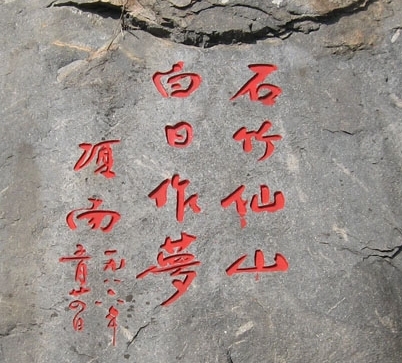 石竹仙山
白日作夢
項南
一九八八年